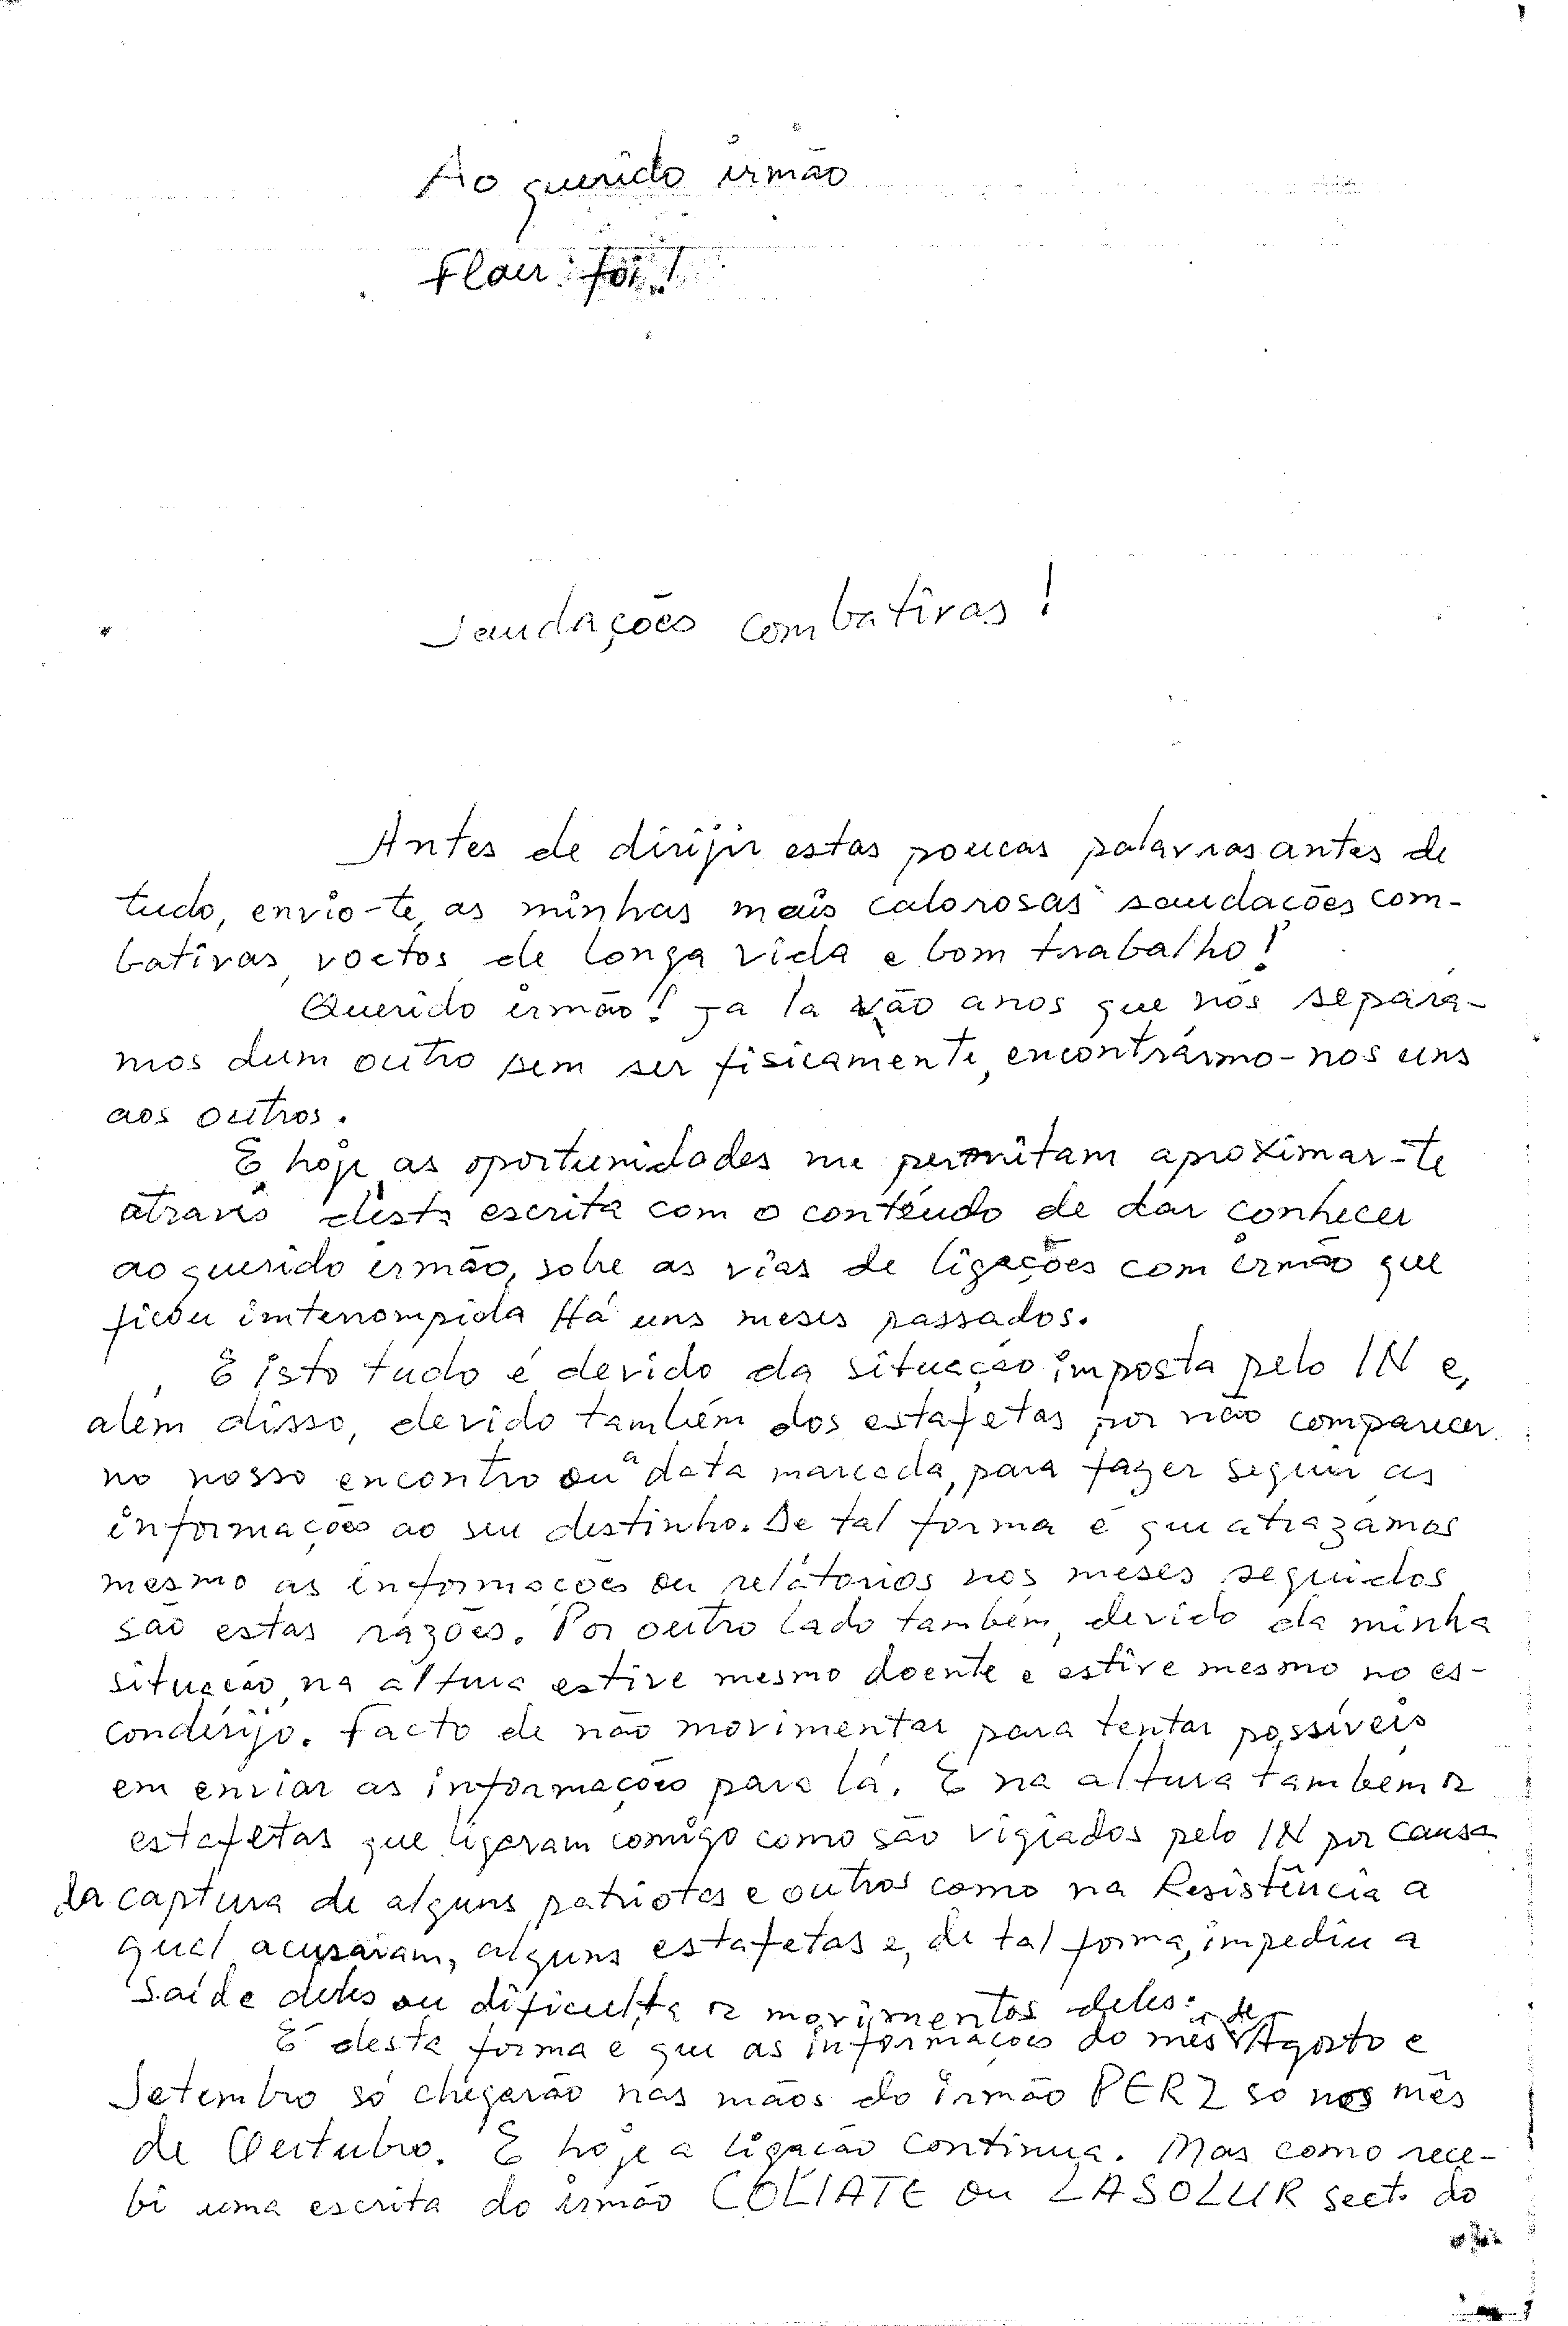 Ao querido irmão
Flau: foi!
Saudações combativas!
Antes de dirijir estas poucas palavras antes de
tudo, envio-te, as minhas mais calorosas saudacões com-
bativas, voctos de longa vida e bom trabalho!
Querido irmão! Ja la vão anos que nós separá-
mos dum outro sem ser fisicamente, encontrármo-nos uns
aos outros.
E hoje, as oportunidades me permitam aproximar-te
atravéis desta escrita com o conteúdo de dar conhecer
ao querido irmão, sobre as vias de ligações com irmão que
ficou imterrompida Há uns meses passados.
E isto tudo é devido da situação imposta pelo IN e,
além disso, devido também dos estafetas por não comparecer
no nosso encontro ou a data marcada, para fazer seguir as
informações ao seu destinho. De tal forma é que atrazámos
mesmo as informações ou relatorios nos meses seguidos
são estas razões. Por outro lado também, devido da minha
situação, na altura estive mesmo doente e estive mesmo no es-
conderijo. Facto de não movimentar para tentar possíveis
em enviar as informações para lá. E na altura também os
estafetas que ligaram comigo como são vigiados pelo IN por causa
da captura de alguns patriotas e outros como na Resistência a
qual acusaram, alguns estafetas e, de tal forma, impediu a
Saída deles ou dificulta os movimentos deles.
E desta forma é que as informações do mês de Agosto e
Setembro só chegarão nas mãos do irmão PERZ só nos mês
de Outubro. E hoje a ligação continua. Mas como rece-
bi uma escrita do irmão COLIATE ou LASOLUR sect. do